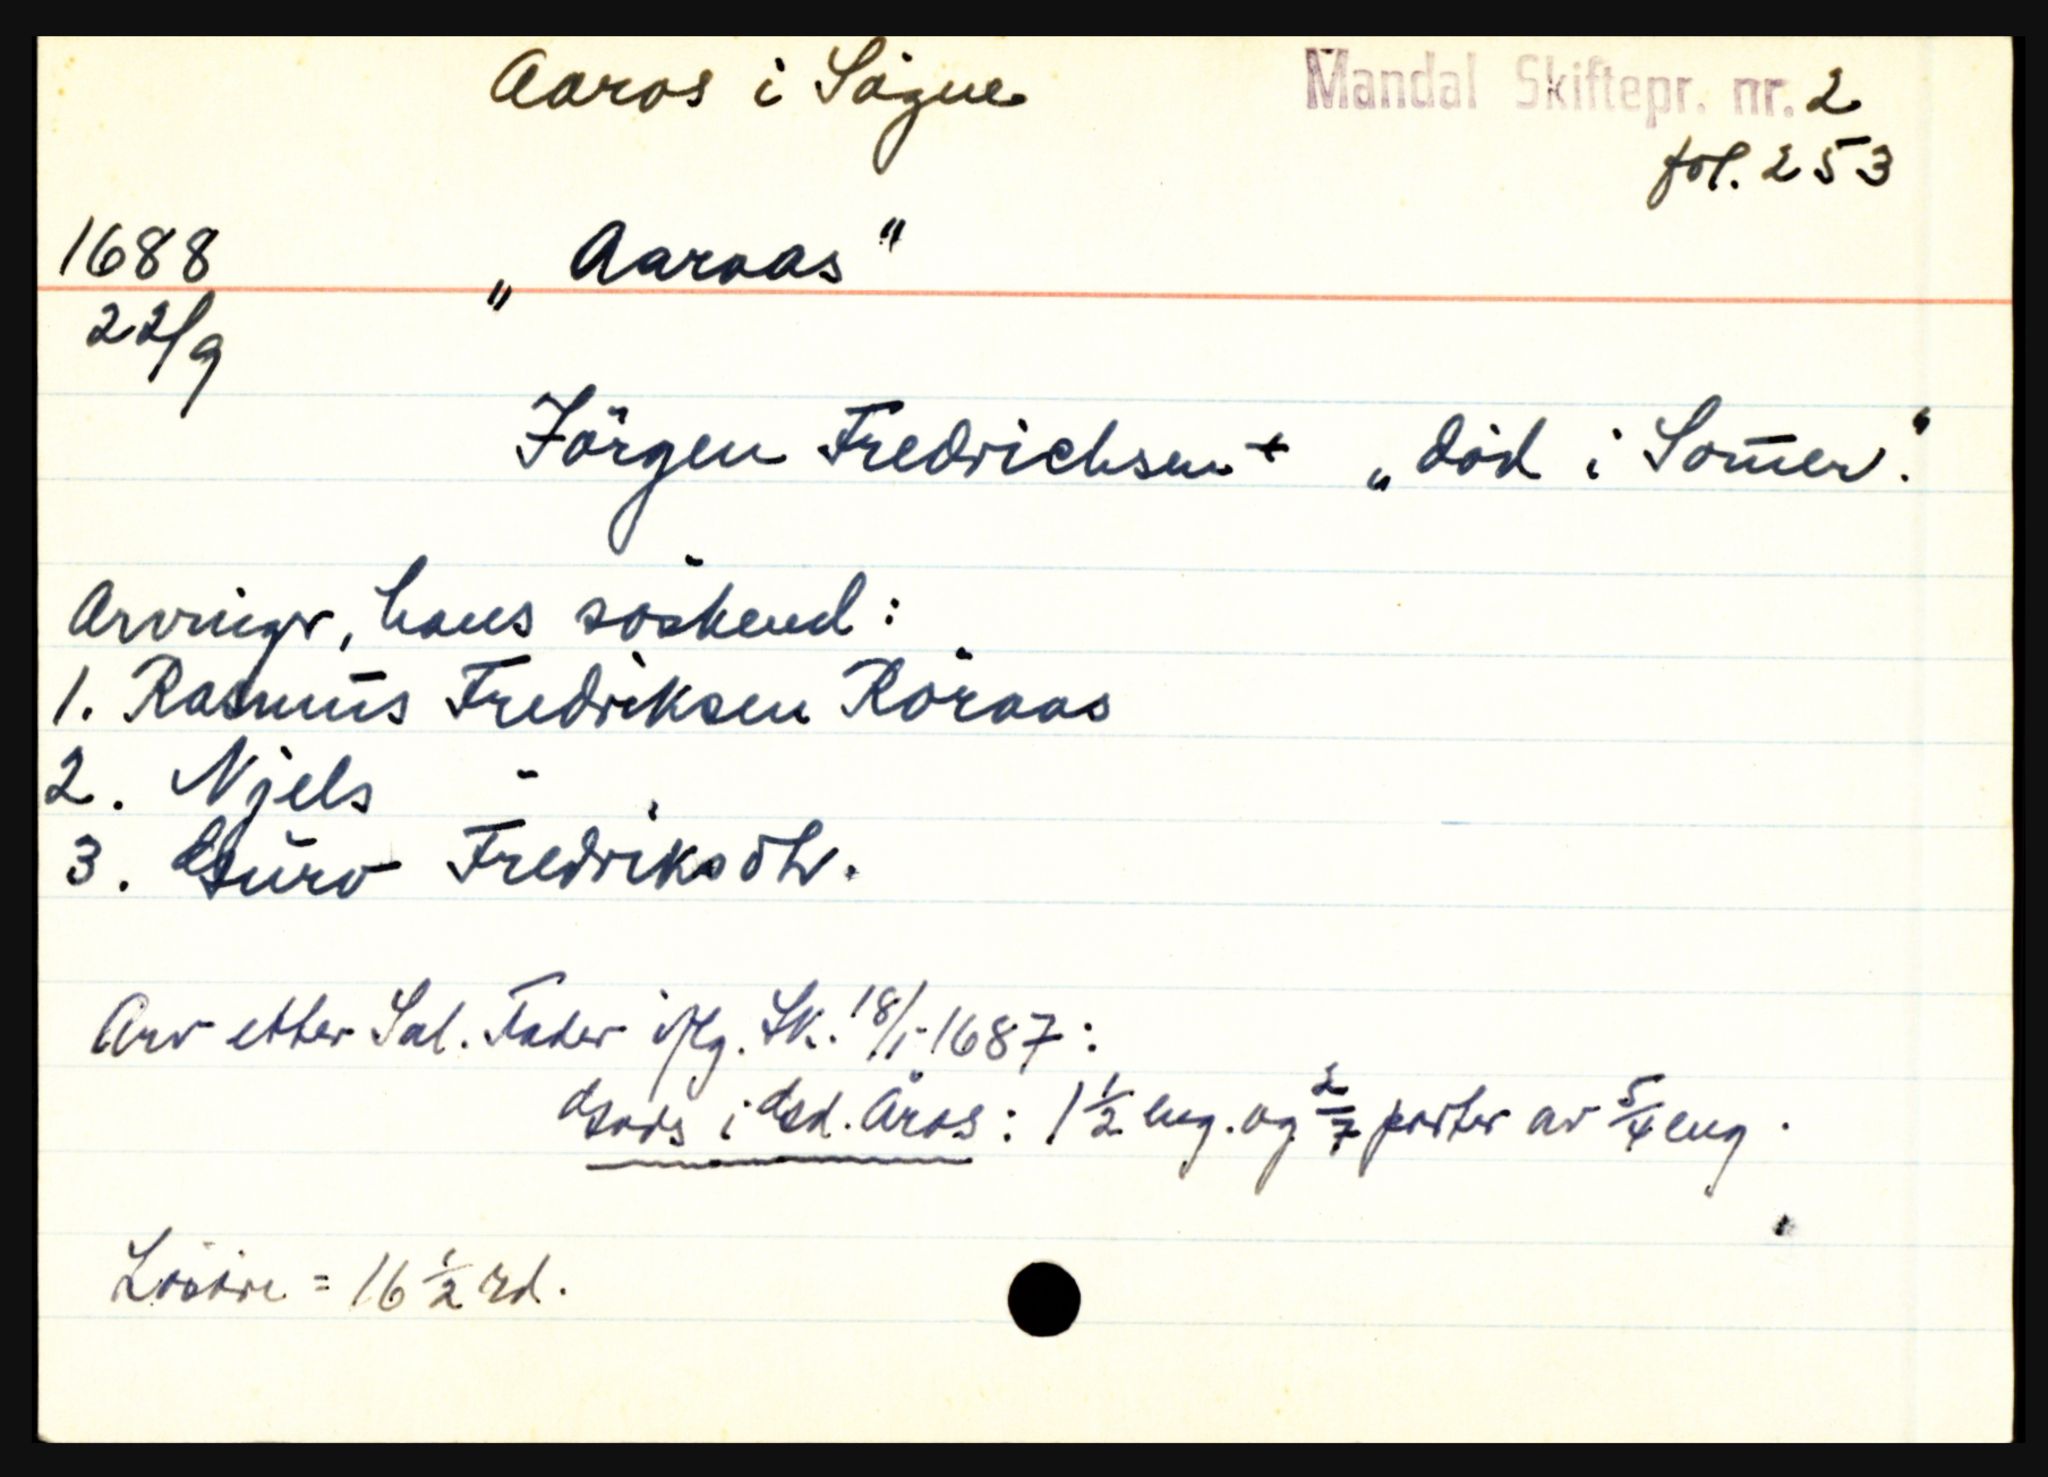 Aaros i Sögne
Mandal Skiftepr. nr. 2
fol. 253
1688 „Aaroas"
22/9
Jörgen Fredrichsen + „död i Som̄er."
Arvinger, hans söskend:
1. Rasmus Fredriksen Röraas
2. Njels -
3. Guro Fredriksdtr.
Arv etter Sal. Fader iflg. Sk. 18/1-1687:
Gods i Gd. Åros: 1 1/2 eng. og 2/7 parter av 5/4 eng.
Lösöre = 16 1/2 rd.